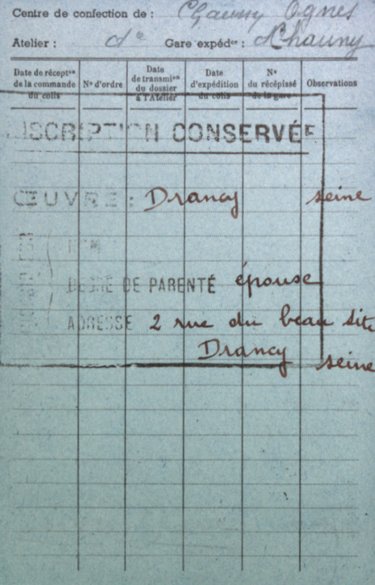 Centre de confection de : Chauny Ognes
Atelier : d° Gare expédre : Chauny
Date de réceptn de la commande du colis
N° d'ordre
Date de transmion du dossier à l'Atelier
Date d'expédition du colis
N° du récépissé de la gare
Observations
INSCRIPTION CONSERVÉE
ŒUVRE : Drancy seine
NOM
DEGRÉ DE PARENTÉ épouse
ADRESSE 2 rue du beau site
Drancy seine